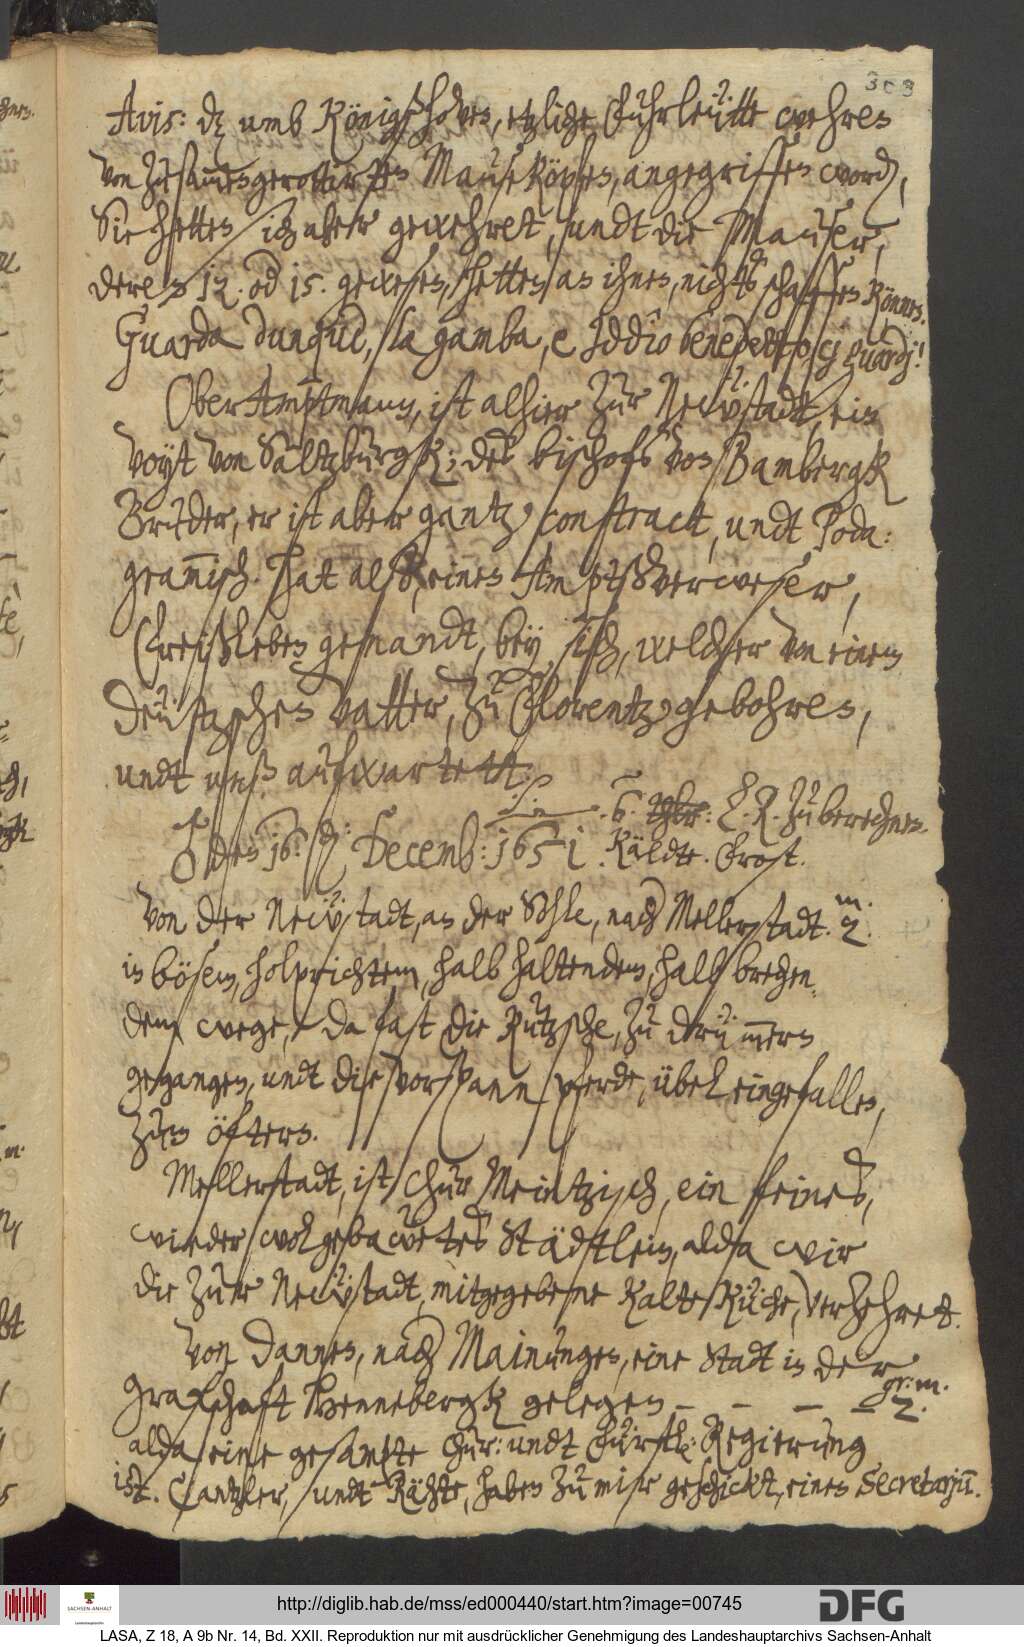 303
Avis: dz umb Königshoven, etzliche Fuhrleütte wehren
von zusamengerottirten Mauseköpfen, angegriffen word,
Sie hetten sich aber gewehret, undt die Mauser,
deren 12. od 15. gewesen, hetten an ihnen, nichts schaffen können.
Guarda dunque, la gamba, e Iddio benedetto, cj guardj!
OberAmptmann, ist alhier zur Neüstadt, ein
Voyt von Saltzburgk; des bischofs von Bambergk
Bruder, er ist aber gantz contract, undt Poda:
granisch. Hat also, einen Amptsverweser,
Creißleben genandt, bey sich, welcher von einem
Deützschen Vatter, zu Florentz gebohren,
undt unß aufwartett.
6. Thlr: E. R. zu berechnen.
den 16. Decemb: 1651. Käldte. Frost.
Von der Neüstadt, an der Sahle, nach Mellerstadt. m. 2.
in bösem, holprichtem, halb haltendem, halb brechen-
dem wege, da fast die Kutzsche, zu drümmern
gegangen, undt die Vorspann pferde, übel eingefallen,
zum öftern.
Mellerstadt, ist Chur Meintzisch, ein feines,
wieder wol gebawetes Städtlein, alda wir
die zur Neüstadt, mitgegebene Kalte Küche, verzehret.
Von Dannen, nach Mainungen, eine Stadt in der
Grafschaft Hennebergk gelegen – – – – gr: m. 2.
alda eine gesampte Chur: undt Fürstl: Regierung
ist. Cantzler, undt Rähte, haben zu mir geschickt, einen Secretarium.
http://diglib.hab.de/mss/ed000440/start.htm?image=00745
SACHSEN-ANHALT
Landeshauptarchiv
DFG
LASA, Z 18, A 9b Nr. 14, Bd. XXII. Reproduktion nur mit ausdrücklicher Genehmigung des Landeshauptarchivs Sachsen-Anhalt